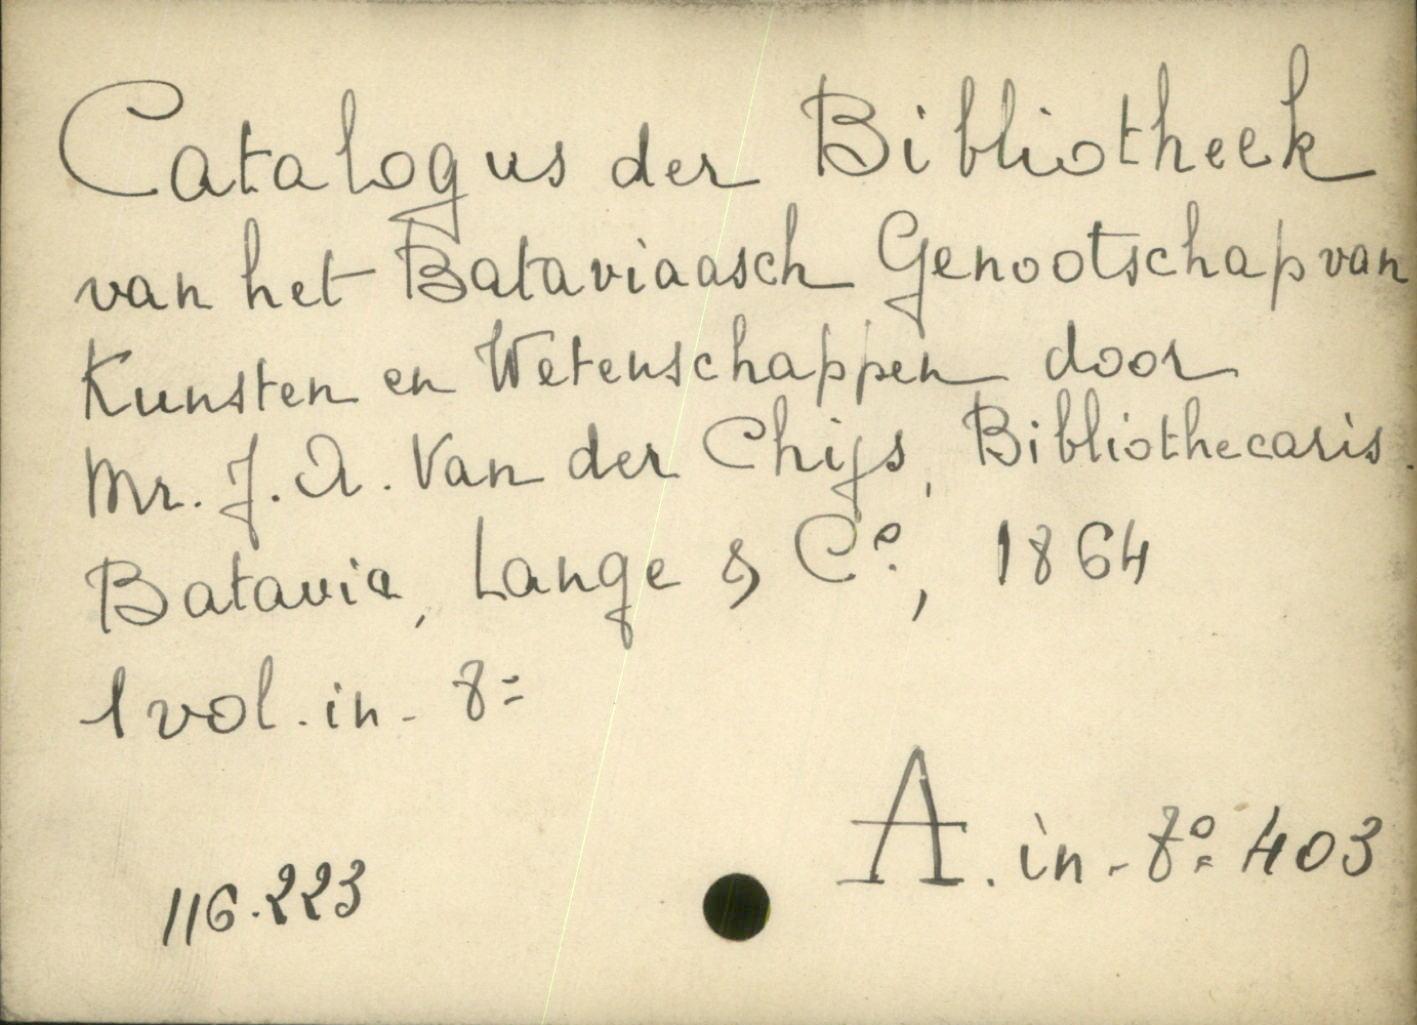 Catalogus der Bibliotheek
van het Bataviaasch Genootschap van
Kunsten en Wetenschappen door
Mr. J. A. Van der Chijs, Bibliothecaris.
Batavia, Lange & Cº, 1864
1 vol. in-8=
A. in-8º 403
116.223